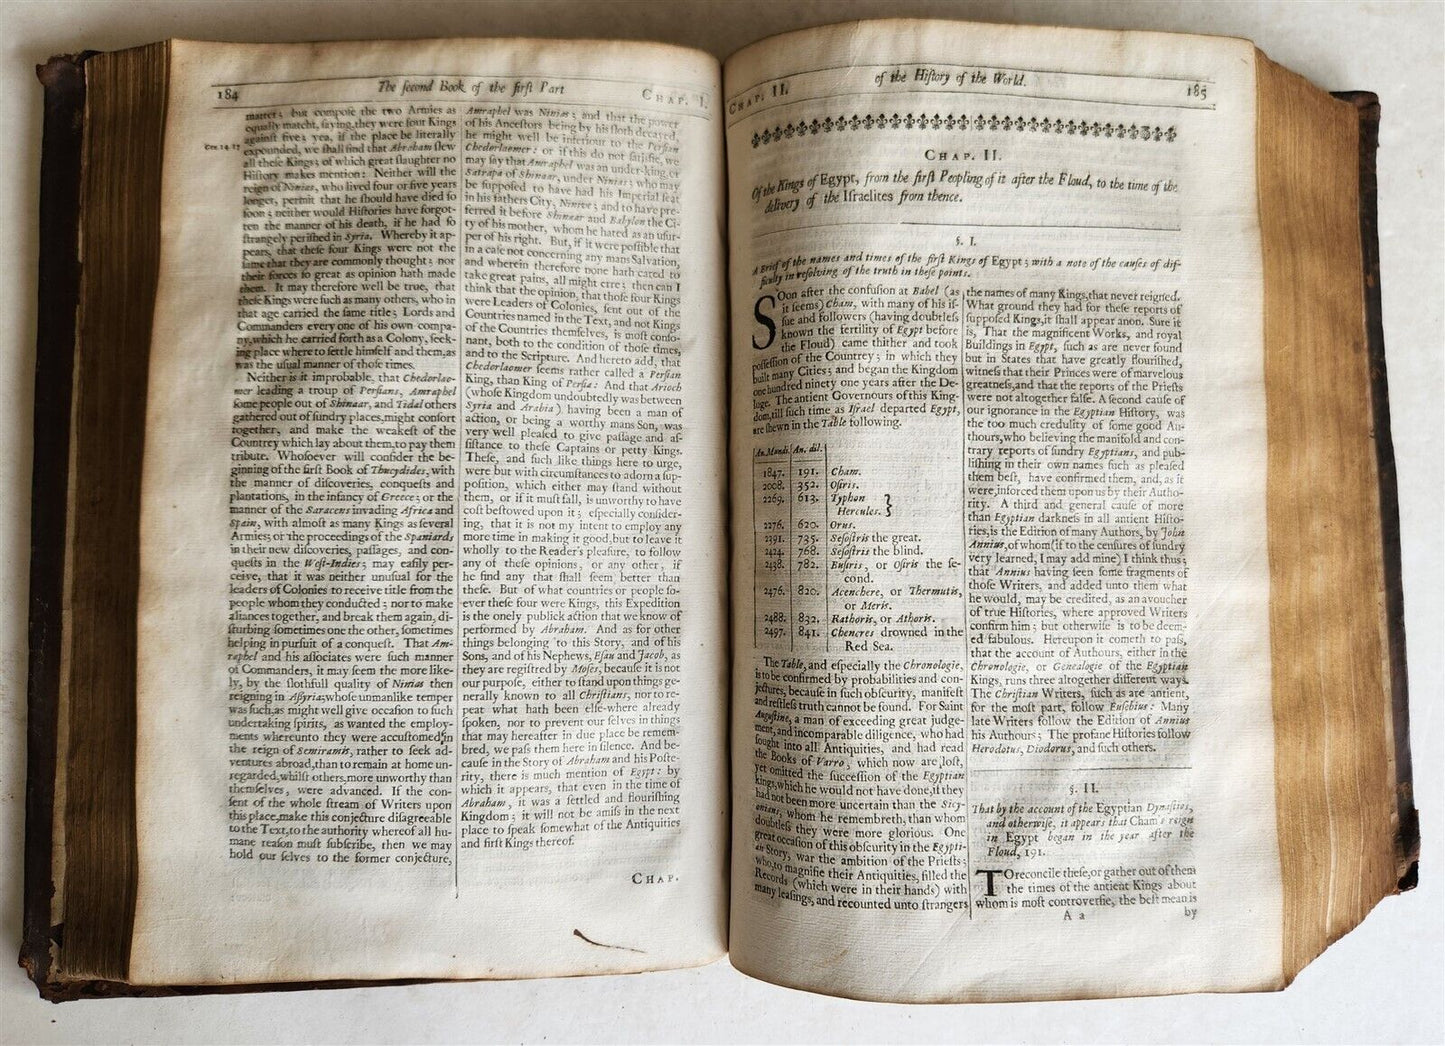 184
The second Book of the first Part
CHAP. I.
Gen. 14. 15
matter; but compose the two Armies as
equally matcht, saying, they were four Kings
against five; yea, if the place be literally
expounded, we shall find that Abraham slew
all these Kings; of which great slaughter no
History makes mention: Neither will the
reign of Ninias, who lived four or five years
longer, permit that he should have died so
soon; neither would Histories have forgot-
ten the manner of his death, if he had so
strangely perished in Syria. Whereby it ap-
pears, that these four Kings were not the
same that they are commonly thought; nor
their forces so great as opinion hath made
them. It may therefore well be true, that
these Kings were such as many others, who in
that age carried the same title; Lords and
Commanders every one of his own compa-
ny, which he carried forth as a Colony, seek-
ing place where to settle himself and them, as
was the usual manner of those times.
Neither is it improbable, that Chedorlao-
mer leading a troup of Persians, Amraphel
some people out of Shinaar, and Tidal others
gathered out of sundry places, might consort
together, and make the weakest of the
Countrey which lay about them, to pay them
tribute. Whosoever will consider the be-
ginning of the first Book of Thucydides, with
the manner of discoveries, conquests and
plantations, in the infancy of Greece; or the
manner of the Saracens invading Africa and
Spain, with almost as many Kings as several
Armies; or the proceedings of the Spaniards
in their new discoveries, passages, and con-
quests in the West-Indies; may easily per-
ceive, that it was neither unusual for the
leaders of Colonies to receive title from the
people whom they conducted; nor to make
aliances together, and break them again, di-
sturbing sometimes one the other, sometimes
helping in pursuit of a conquest. That Am-
raphel and his associates were such manner
of Commanders, it may seem the more like-
ly, by the slothfull quality of Ninias then
reigning in Assyria; whose unmanlike temper
was such, as might well give occasion to such
undertaking spirits, as wanted the employ-
ments whereunto they were accustomed in
the reign of Semiramis, rather to seek ad-
ventures abroad, than to remain at home un-
regarded, whilst others, more unworthy than
themselves, were advanced. If the con-
sent of the whole stream of Writers upon
this place, make this conjecture disagreeable
to the Text, to the authority whereof all hu-
mane reason must subscribe, then we may
hold our selves to the former conjecture,
Amraphel was Ninias; and that the power
of his Ancestors being by his sloth decayed,
he might well be inferiour to the Persian
Chedorlaomer: or if this do not satisfie, we
may say that Amraphel was an under-king, or
Satrapa of Shinaar, under Ninias; who may
be supposed to have had his Imperial seat
in his fathers City, Ninive; and to have pre-
ferred it before Shinaar and Babylon the Ci-
ty of his mother, whom he hated as an usur-
per of his right. But, if it were possible that
in a case not concerning any mans Salvation,
and wherein therefore none hath cared to
take great pains, all might erre; then can I
think that the opinion, that those four Kings
were Leaders of Colonies, sent out of the
Countries named in the Text, and not Kings
of the Countries themselves, is most conso-
nant, both to the condition of those times,
and to the Scripture. And hereto add, that
Chedorlaomer seems rather called a Persian
King, than King of Persia: And that Arioch
(whose Kingdom undoubtedly was between
Syria and Arabia) having been a man of
action, or being a worthy mans Son, was
very well pleased to give passage and as-
sistance to these Captains or petty Kings.
These, and such like things here to urge,
were but with circumstances to adorn a sup-
position, which either may stand without
them, or if it must fall, is unworthy to have
cost bestowed upon it; especially consider-
ing, that it is not my intent to employ any
more time in making it good, but to leave it
wholly to the Reader's pleasure, to follow
any of these opinions, or any other, if
he find any that shall seem better than
these. But of what countries or people so-
ever these four were Kings, this Expedition
is the onely publick action that we know of
performed by Abraham. And as for other
things belonging to this Story, and of his
Sons, and of his Nephews, Esau and Jacob, as
they are registred by Moses, because it is not
our purpose, either to stand upon things ge-
nerally known to all Christians, nor to re-
peat what hath been else-where already
spoken, nor to prevent our selves in things
that may hereafter in due place be remem-
bred, we pass them here in silence. And be-
cause in the Story of Abraham and his Poste-
rity, there is much mention of Egypt: by
which it appears, that even in the time of
Abraham, it was a settled and flourishing
Kingdom; it will not be amiss in the next
place to speak somewhat of the Antiquities
and first Kings thereof.
CHAP.
CHAP. II.
of the History of the World.
185
CHAP. II.
Of the Kings of Egypt, from the first Peopling of it after the Floud, to the time of the
delivery of the Israelites from thence.
§. I.
A Brief of the names and times of the first Kings of Egypt; with a note of the causes of dif-
ficulty in resolving of the truth in these points.
SOon after the confusion at Babel (as
it seems) Cham, with many of his is-
sue and followers (having doubtless
known the fertility of Egypt before
the Floud) came thither and took
possession of the Countrey; in which they
built many Cities; and began the Kingdom
one hundred ninety one years after the De-
luge. The antient Governours of this King-
dom, till such time as Israel departed Egypt,
are shewn in the Table following.
An. Mundi. An. dil.
1847. 191. Cham.
2008. 352. Osiris.
2269. 613. Typhon
Hercules. }
2276. 620. Orus.
2391. 735. Sesostris the great.
2424. 768. Sesostris the blind.
2438. 782. Busiris, or Osiris the se-
cond.
2476. 820. Acenchere, or Thermutis,
or Meris.
2488. 832. Rathoris, or Athoris.
2497. 841. Chencres drowned in the
Red Sea.
The Table, and especially the Chronologie,
is to be confirmed by probabilities and con-
jectures, because in such obscurity, manifest
and restless truth cannot be found. For Saint
Augustine, a man of exceeding great judge-
ment, and incomparable diligence, who had
sought into all Antiquities, and had read
the Books of Varro, which now are lost,
yet omitted the succession of the Egyptian
kings, which he would not have done, if they
had not been more uncertain than the Sicy-
onians, whom he remembreth, than whom
doubtless they were more glorious. One
great occasion of this obscurity in the Egypti-
an Story, was the ambition of the Priests;
who, to magnifie their Antiquities, filled the
Records (which were in their hands) with
many leasings, and recounted unto strangers
the names of many Kings, that never reigned.
What ground they had for these reports of
supposed Kings, it shall appear anon. Sure it
is, That the magnificent Works, and royal
Buildings in Egypt, such as are never found
but in States that have greatly flourished,
witness that their Princes were of marvelous
greatness, and that the reports of the Priests
were not altogether false. A second cause of
our ignorance in the Egyptian History, was
the too much credulity of some good Au-
thours, who believing the manifold and con-
trary reports of sundry Egyptians, and pub-
lishing in their own names such as pleased
them best, have confirmed them, and, as it
were, inforced them upon us by their Autho-
rity. A third and general cause of more
than Egyptian darkness in all antient Histo-
ries, is the Edition of many Authors, by John
Annius, of whom (if to the censures of sundry
very learned, I may add mine) I think thus;
that Annius having seen some fragments of
those Writers, and added unto them what
he would, may be credited, as an avoucher
of true Histories, where approved Writers
confirm him; but otherwise is to be deem-
ed fabulous. Hereupon it cometh to pass,
that the account of Authours, either in the
Chronologie, or Genealogie of the Egyptian
Kings, runs three altogether different ways.
The Christian Writers, such as are antient,
for the most part, follow Eusebius: Many
late Writers follow the Edition of Annius
his Authours; The profane Histories follow
Herodotus, Diodorus, and such others.
§. II.
That by the account of the Egyptian Dynasties,
and otherwise, it appears that Cham's reign
in Egypt began in the year after the
Floud, 191.
TO reconcile these, or gather out of them
the times of the antient Kings about
whom is most controversie, the best mean is
A a
by